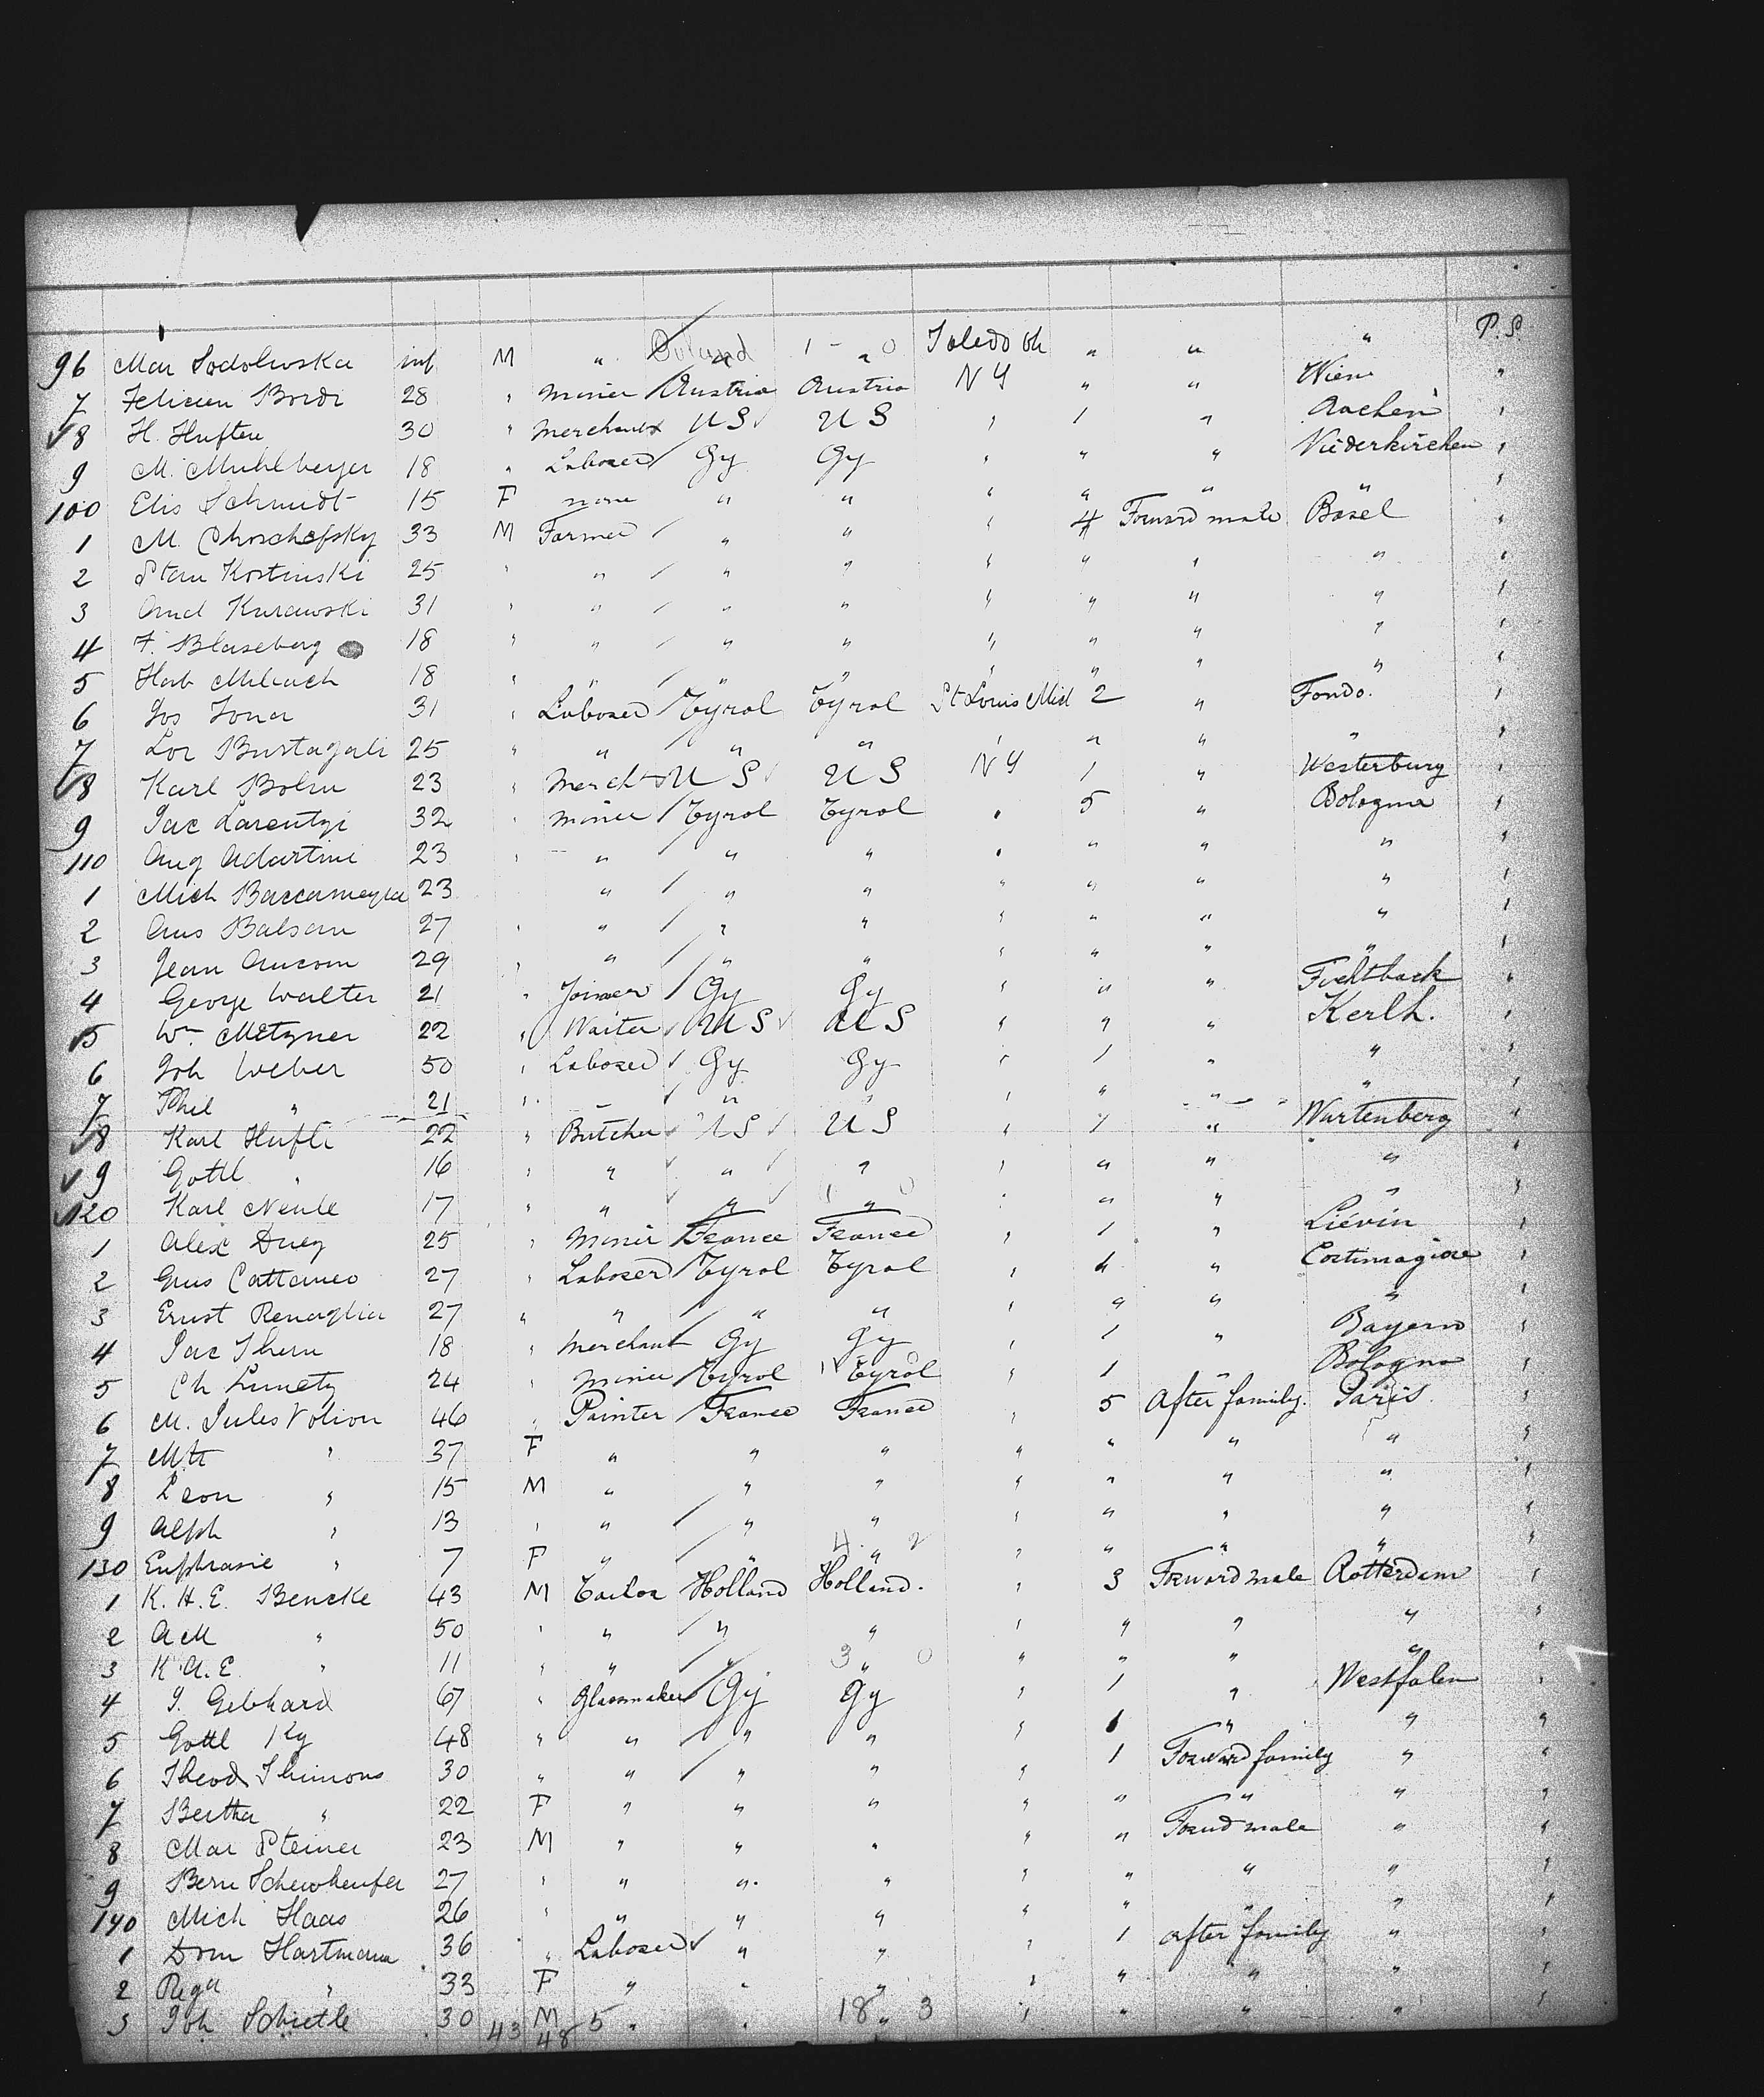 P.S.
96 Mar Sodolewska inf M " Poland 1 - " 0 Toledo Oh " " "
7 Felicien Bordi 28 " Miner Austria Austria N Y " " Wien "
8 H. Huften 30 " Merchant U S U S " 1 " Aachen "
9 M. Muhlberger 18 " Laborer Gy Gy " " " Niederkirchen "
100 Elis Schmidt 15 F none " " " " " " "
1 M. Choschefsky 33 M Farmer " " " 4 Forward male Basel "
2 Stan Kostinski 25 " " " " " " " " "
3 And Kurawski 31 " " " " " " " " "
4 F. Blaseberg 18 " " " " " " " " "
5 18 " " " " " " " " "
6 Jos Tona 31 " Laborer Tyrol Tyrol St Louis 2 " Fondo. "
7 Lor Bustagali 25 " " " " " " " " "
8 Karl Bolm 23 " Merch U S U S N Y 1 " Westerburg "
9 Jac Larentzi 32 " Miner Tyrol Tyrol " 5 " Bologna "
110 Aug Adartini 23 " " " " " " " " "
1 Mich 23 " " " " " " " "
2 Ans Balsam 27 " " " " " " " " "
3 Jean 29 " " " " " " " " "
4 George Walter 21 " Joiner Gy Gy " " " "
5 Wm Metzner 22 " Waiter U S U S " " " Kerlh. "
6 Joh Weber 50 " Laborer Gy Gy " 1 " " "
7 Phil " 21 " " " " " " " " "
8 Karl Hufli 22 " Butcher U S U S " 1 " Wurtenberg "
9 Gottl " 16 " " " " " " " " "
120 Karl Neule 17 " " " 1 " 0 " " " " "
1 Alex Duez 25 " Miner France France " 1 " Liévin "
2 Gus Cattaneo 27 " Laborer Tyrol Tyrol " 4 " "
3 Ernst Renaglia 27 " " " " " " " " "
4 Jac Thern 18 " Merchant Gy Gy " 1 " Bayern "
5 Ch Lunetz 24 " Miner Tyrol 1 Tyrol 0 " 1 " Bologna "
6 M. Jules Volion 46 " Painter France France " 5 After family. Paris "
7 " 37 F " " " " " " " "
8 Leon " 15 M " " " " " " " "
9 Alph " 13 " " " " " " " " "
130 Euphrasie " 7 F " " 4 " 2 " " " " "
1 K. H. E. Bencke 43 M Tailor Holland Holland. " 3 Forward male Rotterdam "
2 A M " 50 " " " " " " " " "
3 K. A. E. " 11 " " " 3 " 0 " " " " "
4 J. Gebhard 67 " Glassmaker Gy Gy " 1 " Westfalen "
5 Gottl 48 " " " " " 1 " " "
6 Theod Thimons 30 " " " " " 1 Forward family " "
7 Bertha " 22 F " " " " " " " "
8 Mar Steiner 23 M " " " " " Forwd male " "
9 Bern 27 " " " " " " " " "
140 Mich Haas 26 " " " " " " " " "
1 Dom Hartmann 36 " Laborer " " " 1 After family " "
2 " 33 F " " " " " " " "
3 Joh Schietle 30 M " " " " " " " "
43 48 5 18 3